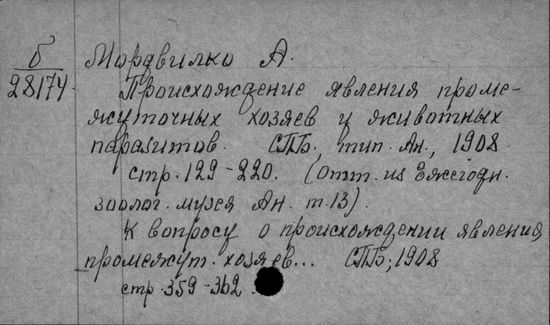 б Мордвилко А.
28174 Происхождение явления проме-
жуточных хозяев и животных
паразитов. СПБ, тип. Ан., 1908.
стр. 129-220. (отт. из Ежегодн.
зоолог. музея Ан. т. 13).
К вопросу о происхождении явления
промежут. хозяев... СПБ, 1908
стр. 359-362.